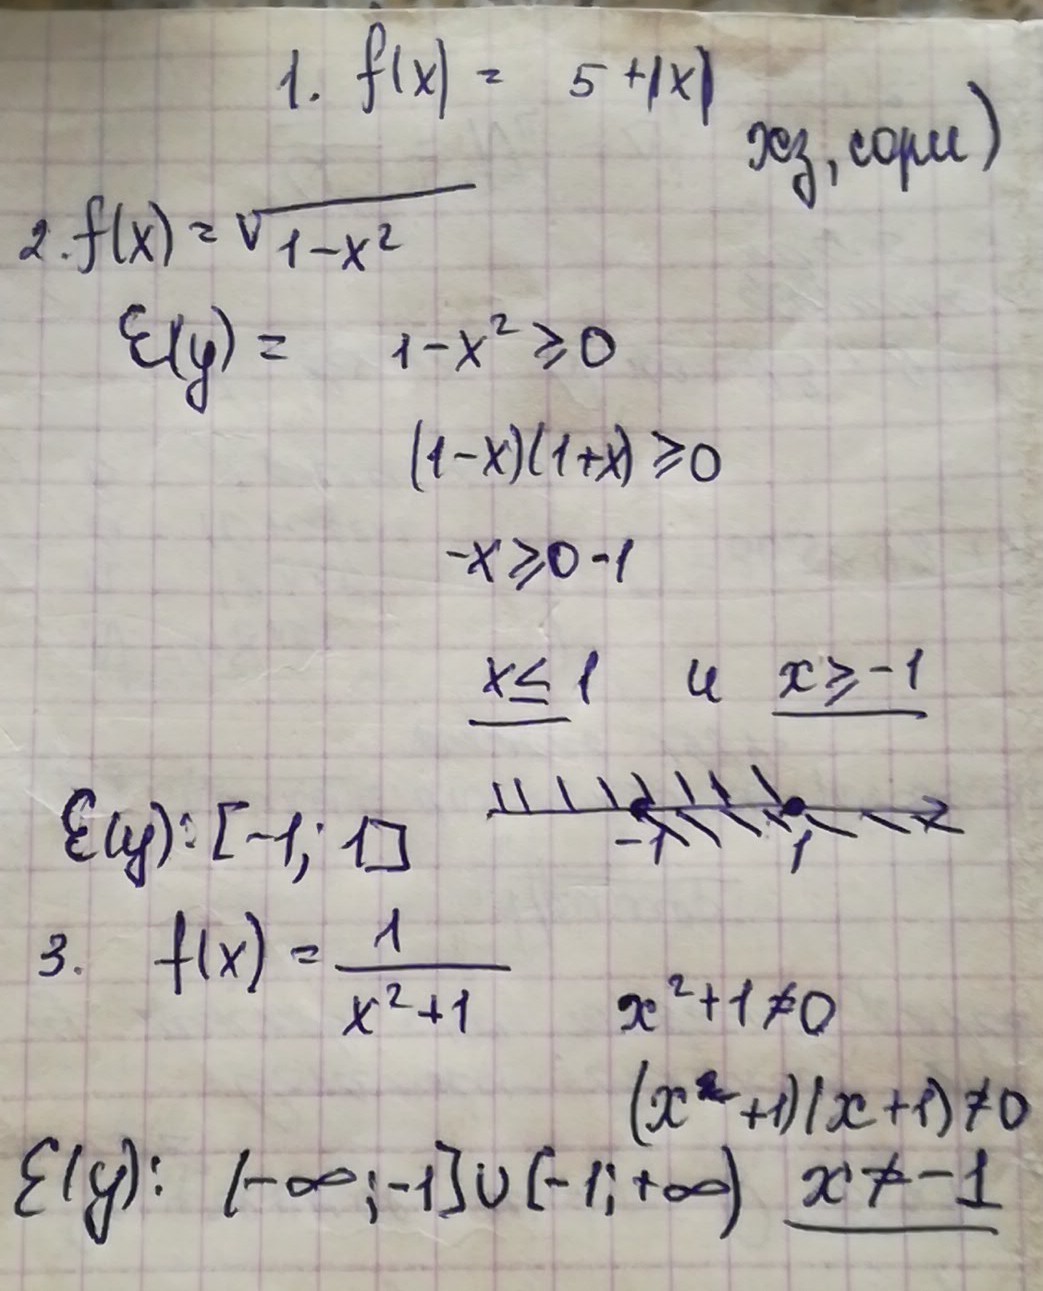 1. f(x) = 5+|x|
хз, сори)
2. f(x) = √1-x²
E(y) = 1-x² ⩾ 0
(1-x)(1+x) ⩾ 0
-x ⩾ 0-1
x ≤ 1 и x ⩾ -1
-1 1
E(y): [-1; 1]
3. f(x) = 1/(x²+1)
x²+1 ≠ 0
(x+1)(x+1) ≠ 0
E(y): (-∞; -1] ∪ [-1; +∞) x ≠ -1